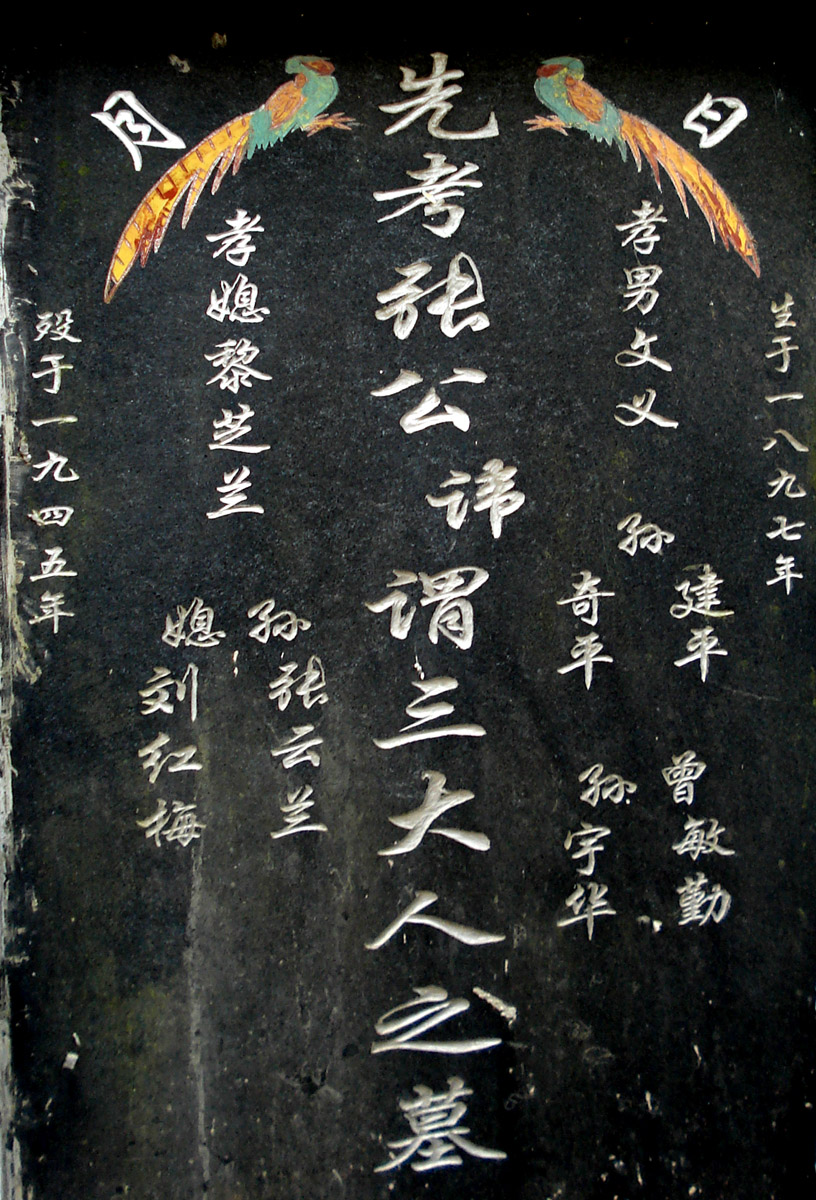 日
月
生于一八九七年
孝男文义
孙
建平
奇平
曾孙
敏勤
宇华
先考张公讳谓三大人之墓
孝媳黎芝兰
孙媳
张云兰
刘红梅
殁于一九四五年